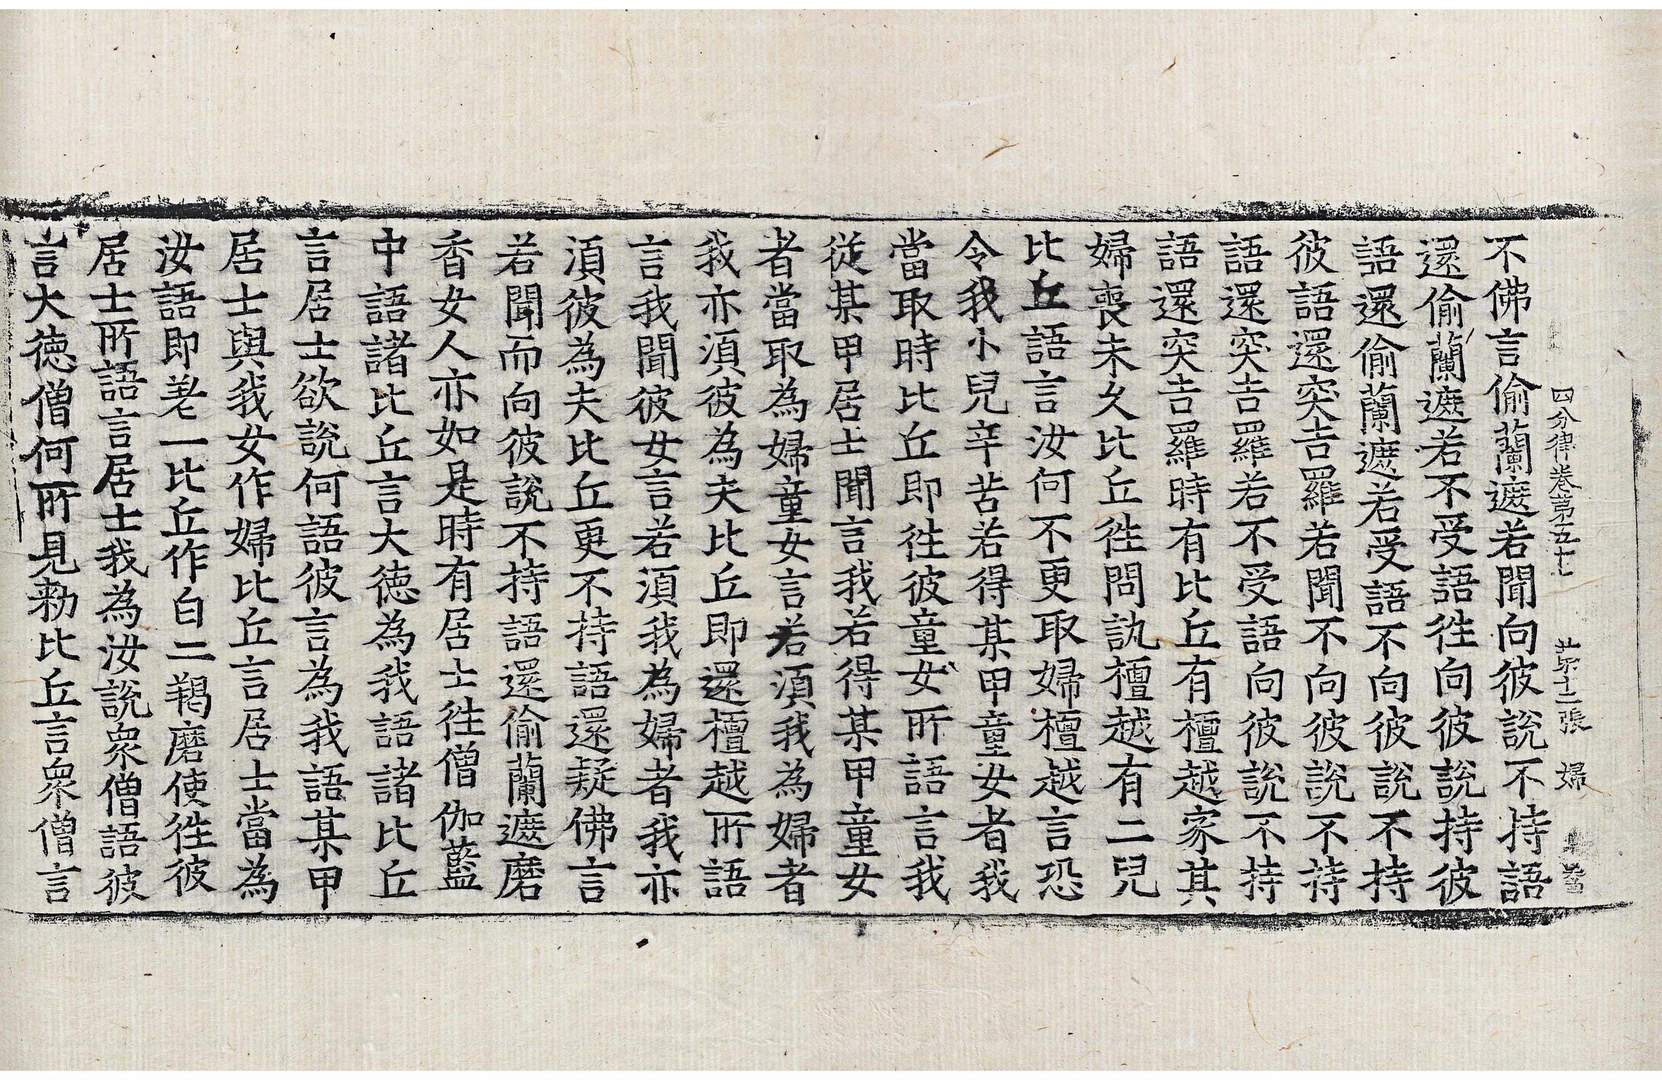 四分律卷第五十七 第十二張 婦
不佛言偷蘭遮若聞向彼說不持語
還偷蘭遮若不受語徃向彼說持彼
語還偷蘭遮若受語不向彼說不持
彼語還突吉羅若聞不向彼說不持
語還突吉羅若不受語向彼說不持
語還突吉羅時有比丘有檀越家其
婦喪未久比丘徃問訊檀越有二兒
比丘語言汝何不更取婦檀越言恐
令我小兒辛苦若得某甲童女者我
當取時比丘即徃彼童女所語言我
從某甲居士聞言我若得某甲童女
者當取為婦童女言若須我為婦者
我亦須彼為夫比丘即還檀越所語
言我聞彼女言若須我為婦者我亦
須彼為夫比丘更不持語還疑佛言
若聞而向彼說不持語還偷蘭遮磨
香女人亦如是時有居士徃僧伽藍
中語諸比丘言大德為我語諸比丘
言居士欲說何語彼言為我語某甲
居士與我女作婦比丘言居士當為
汝語即差一比丘作白二羯磨使徃彼
居士所語言居士我為汝說衆僧語彼
言大德僧何所見勑比丘言衆僧言